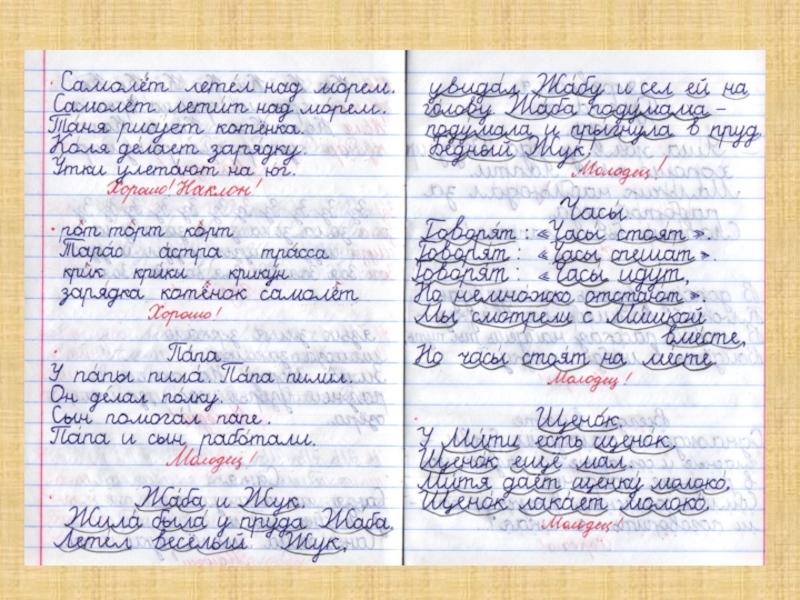 Самолёт летел над морем.
Самолёт летит над морем.
Таня рисует котёнка.
Коля делает зарядку.
Утки улетают на юг.
Хорошо! Наклон!
рот торт корт
Тарас астра трасса
крик крики крикун
зарядка котёнок самолёт
Хорошо!
Папа
У папы пила. Папа пилил.
Он делал полку.
Сын помогал папе.
Папа и сын работали.
Молодец!
Жаба и Жук.
Жила была у пруда Жаба.
Летел весёлый Жук,
увидал Жабу и сел ей на
голову Жаба подумала -
подумала и прыгнула в пруд
бедный Жук.
Молодец!
Часы
Говорят: «Часы стоят».
Говорят: «Часы спешат».
Говорят: «Часы идут,
Но немножко отстают».
Мы смотрели с Мишкой
вместе,
Но часы стоят на месте.
Молодец!
Щенок
У Мити есть щенок.
Щенок ещё мал.
Митя даёт щенку молоко.
Щенок лакает молоко.
Молодец!